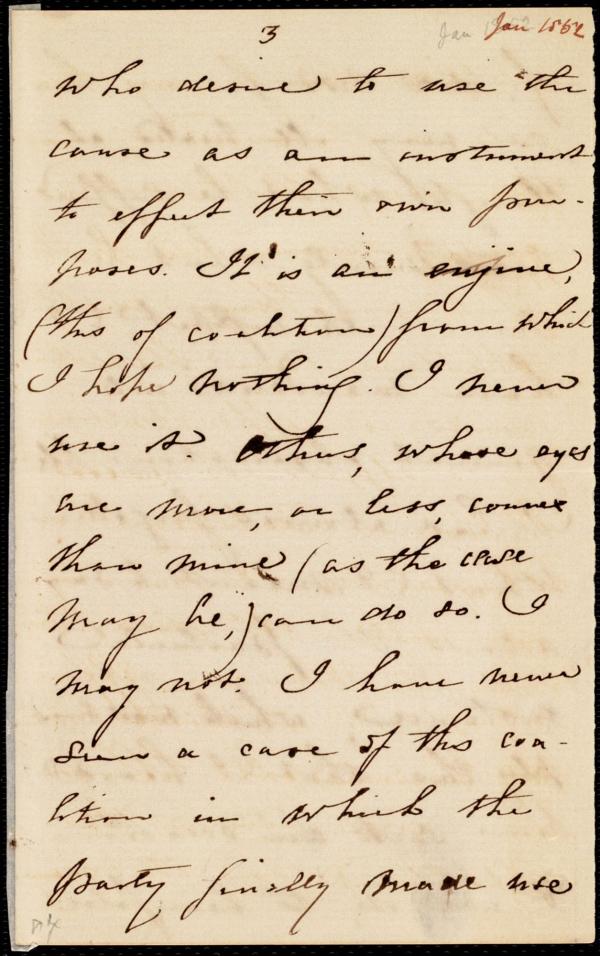 3
Jan Jan 1852
who desire to use the
cause as an instrument
to effect their own pur-
poses. It is an engine,
(this of coalition) from which
I hope nothing. I never
use it. Others, whose eyes
are more, or less, convex
than mine (as the case
may be,) can do so. I
may not. I have never
seen a case of this coa-
lition in which the
party finally made use